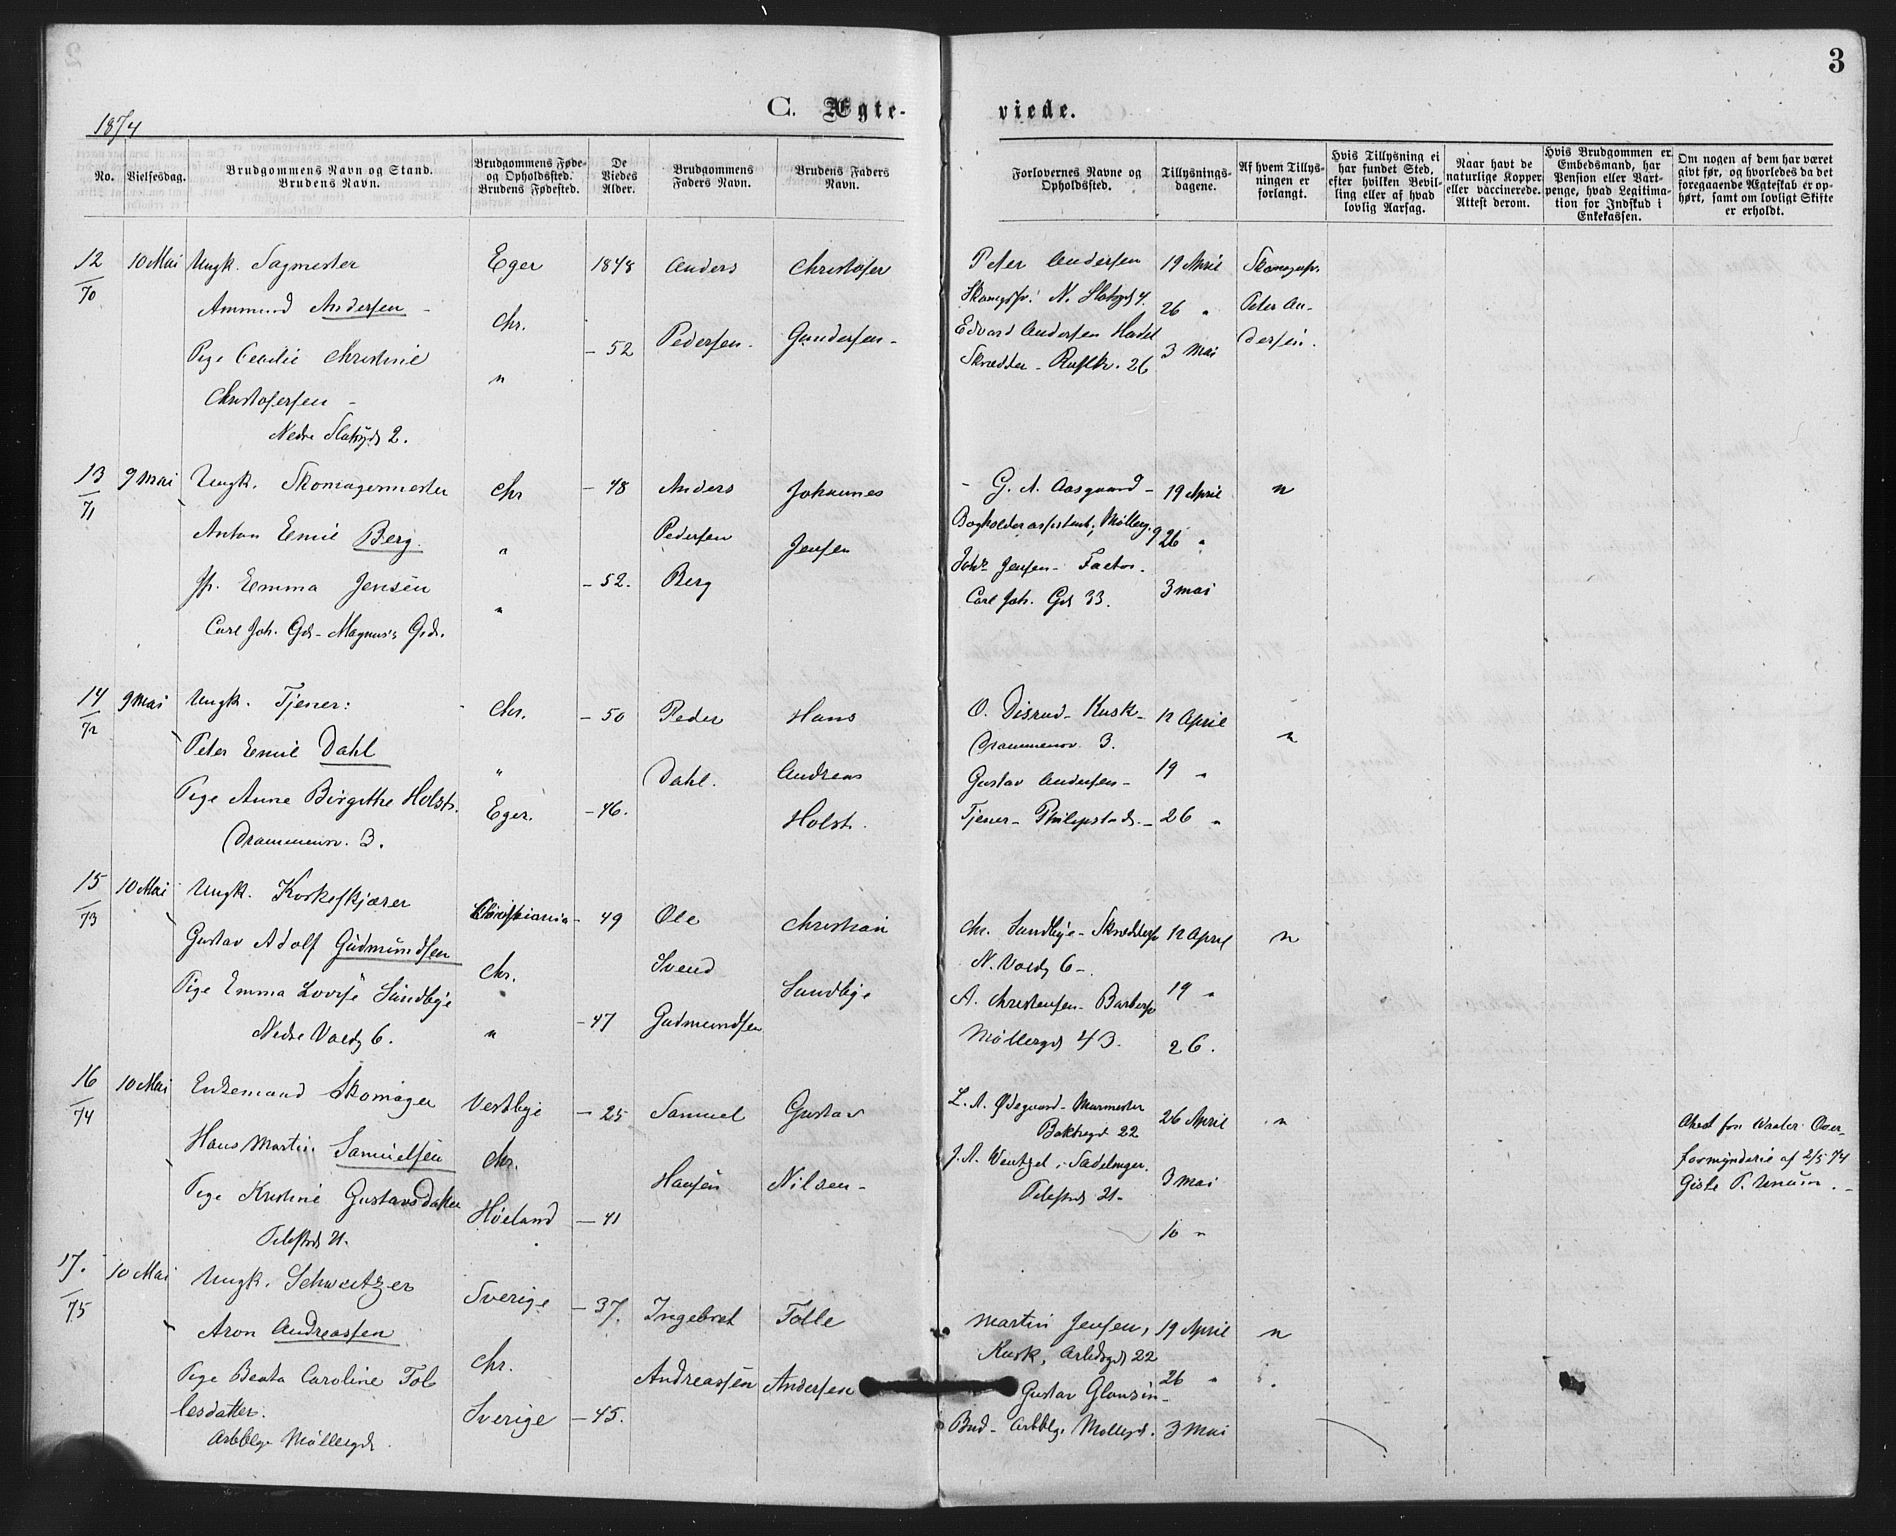 3
1874
C. Ægte-
viede.
No.
Vielsesdag.
Brudgommens Navn og Stand.
Brudens Navn.
Brudgommens Føde-
og Opholdssted.
Brudens Fødested.
De
Viedes
Alder.
Brudgommens
Faders Navn.
Brudens Faders
Navn.
Forlovernes Navne og
Opholdssted.
Tillysnings-
dagene.
Af hvem Tillys-
ningen er
forlangt.
Hvis Tillysning ei
har fundet Sted,
efter hvilken Bevil-
ling eller af hvad
lovlig Aarsag.
Naar havt de
naturlige Kopper
eller vaccinerede.
Attest derom.
Hvis Brudgommen er
Embedsmand, har
Pension eller Vart-
penge, hvad Legitima-
tion for Indskud i
Enkekassen.
Om nogen af dem har været
givt før, og hvorledes da det
foregaaende Ægteskab er op-
hørt, samt om lovligt Skifte
er erholdt.
12
70
10 Mai
Ungk. Sagmester
Ammund Andersen -
Pige Cecilie Christine
Christofersen -
Nedre Slotsgd 2.
Eger
Chr.
"
1848
- 52
Anders
Pedersen.
Christofer
Gundersen-
Peter Andersen
Skomagersv. N. Slotsgd 4.
Edvard Andersen
Skrædder - 26
19 April
26 "
3 Mai
Skomagersv.
Peter An-
dersen.
13
71
9 Mai
Ungk. Skomagermester
Anton Emil Berg.
Jfr. Emma Jensen
Carl Joh. Gd - Magnus's Grd.
Chr
"
"
- 48
- 52.
Anders
Pedersen
Berg
Johannes
Jensen
- G. A. Aasgaard -
Bogholderassistent, Møllerg. 9
Johs Jensen - Factor.
Carl Joh. Gd 33.
19 April
26 "
3 Mai
"
14
72
9 Mai
Ungk. Tjener:
Peter Emil Dahl
Pige Anne Birgitte Holst.
Drammensv. 3.
Chr.
"
Eger.
- 50
- 46.
Peder
Dahl.
Hans
Andreas
Holst.
O. Disrud - Kusk -
Drammensv. 3.
Gustav Andersen -
Tjener - Philipstad. -
12 April
19 "
26 "
"
15
73
10 Mai
Ungk. Korkeskjærer
Gustav Adolf Gudmundsen
Pige Emma Lovise Sundbye
Nedre Voldg 6.
Christiania
Chr.
"
- 49
- 47
Ole
Svend
Gudmundsen
Christian
Sundbye
Chr. Sundbye - Skræddersv
N. Voldg 6 -.
A. Christensen - Barbersv
Møllergd 43.
12 April
19 "
26.
"
16
74
10 Mai
Enkemand Skomager
Hans Martin Samuelsen
Pige Kristine Gustavsdatter
Pilestrd 21.
Vestbye
Chr.
Høeland
- 25
- 41
Samuel
Hansen
Gustav
Nilsen -
L. A. Ødegaard - Murmester
22
J. A. Wentzel, Sadelmager.
Pilestrd 21 -
26 April
3 Mai
10 "
"
Attest fra Vaaler Over-
formynderie af 2/5 74
17.
75
10 Mai
Ungk. Schweitzer
Aron Andreassen
Pige Beata Caroline Tol-
lesdatter.
Arbblg. Møllergd.
Sverige
Chr.
Sverige
- 37.
- 45.
Ingebret
Andreassen
Tolle
Andersen
Martin Jensen,
Kusk, Arbdsgd 22
Gustav
Bud - Arbblg. Møllergd.
19 April
26 "
3 Mai
"
"